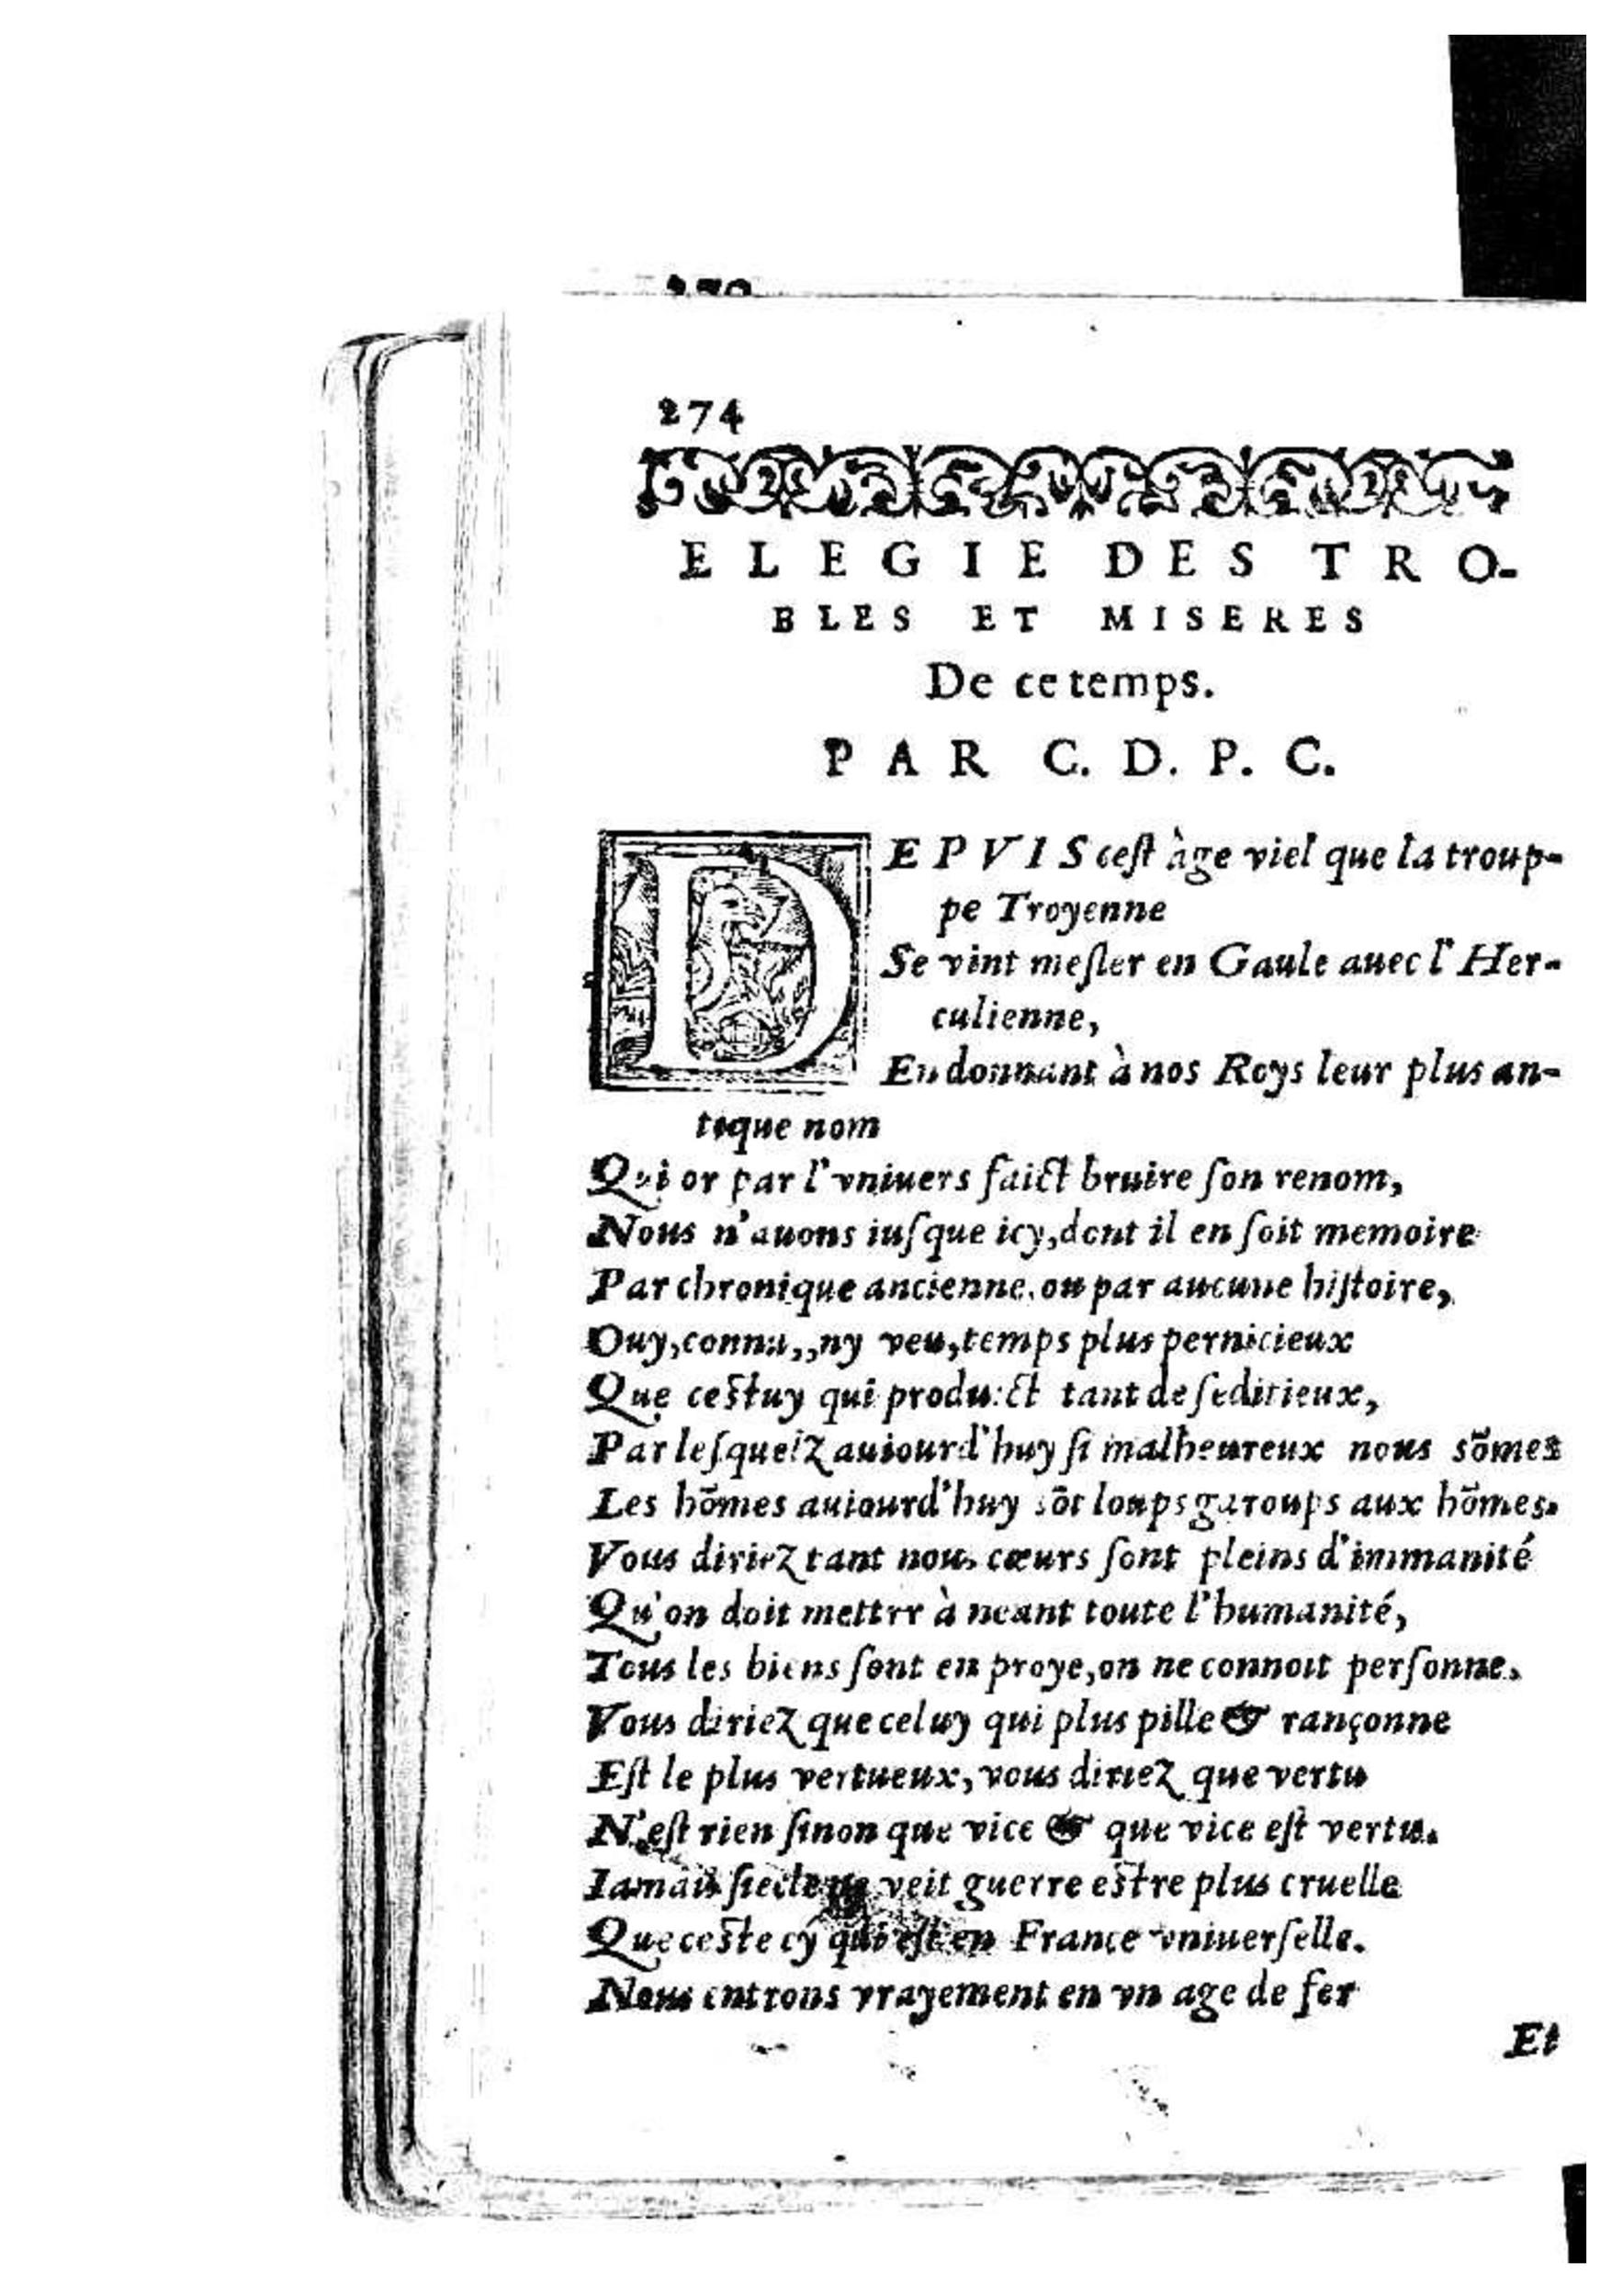 274
ELEGIE DES TRO-
BLES ET MISERES
De ce temps.
PAR C. D. P. C.
DEPVIS cest àge viel que la troup-
pe Troyenne
Se vint mesler en Gaule auec l'Her-
culienne,
En donnant à nos Roys leur plus an-
tique nom
Qui or par l'vniuers faict bruire son renom,
Nous n'auons iusque icy, dont il en soit memoire
Par chronique ancienne, ou par aucune histoire,
Ouy, connu,, ny veu, temps plus pernicieux
Que cestuy qui produict tant de seditieux,
Par lesquelz auiourd'huy si malheureux nous sõmes
Les hõmes auiourd'huy sõt loups garoups aux hõmes.
Vous diriez tant nous cœurs sont pleins d'immanité
Qu'on doit mettrr à neant toute l'humanité,
Tous les biens sont en proye, on ne connoit personne,
Vous diriez que celuy qui plus pille & rançonne
Est le plus vertueux, vous diriez que vertu
N'est rien sinon que vice & que vice est vertu.
Iamais siecle ne veit guerre estre plus cruelle
Que ceste cy qui est en France vniuerselle.
Nous entrons vrayement en vn age de fer
Et